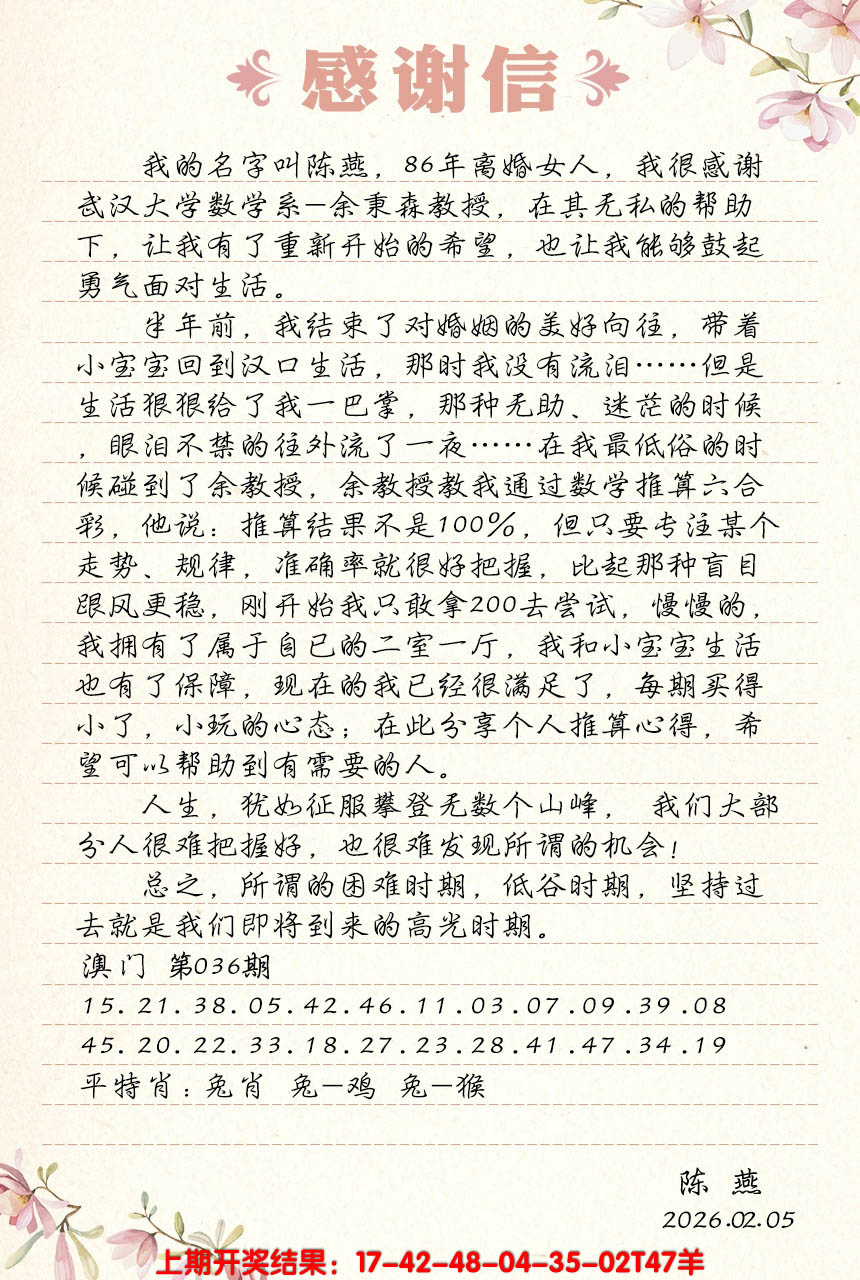 感谢信
我的名字叫陈燕，86年离婚女人，我很感谢
武汉大学数学系—余秉森教授，在其无私的帮助
下，让我有了重新开始的希望，也让我能够鼓起
勇气面对生活。
半年前，我结束了对婚姻的美好向往，带着
小宝宝回到汉口生活，那时我没有流泪……但是
生活狠狠给了我一巴掌，那种无助、迷茫的时候
，眼泪不禁的往外流了一夜……在我最低俗的时
候碰到了余教授，余教授教我通过数学推算六合
彩，他说：推算结果不是100%，但只要专注某个
走势、规律，准确率就很好把握，比起那种盲目
跟风更稳，刚开始我只敢拿200去尝试，慢慢的，
我拥有了属于自已的二室一厅，我和小宝宝生活
也有了保障，现在的我已经很满足了，每期买得
小了，小玩的心态；在此分享个人推算心得，希
望可以帮助到有需要的人。
人生，犹如征服攀登无数个山峰， 我们大部
分人很难把握好，也很难发现所谓的机会！
总之，所谓的困难时期，低谷时期，坚持过
去就是我们即将到来的高光时期。
澳门 第036期
15.21.38.05.42.46.11.03.07.09.39.08
45.20.22.33.18.27.23.28.41.47.34.19
平特肖：兔肖 兔—鸡 兔—猴
陈 燕
2026.02.05
上期开奖结果：17-42-48-04-35-02T47羊